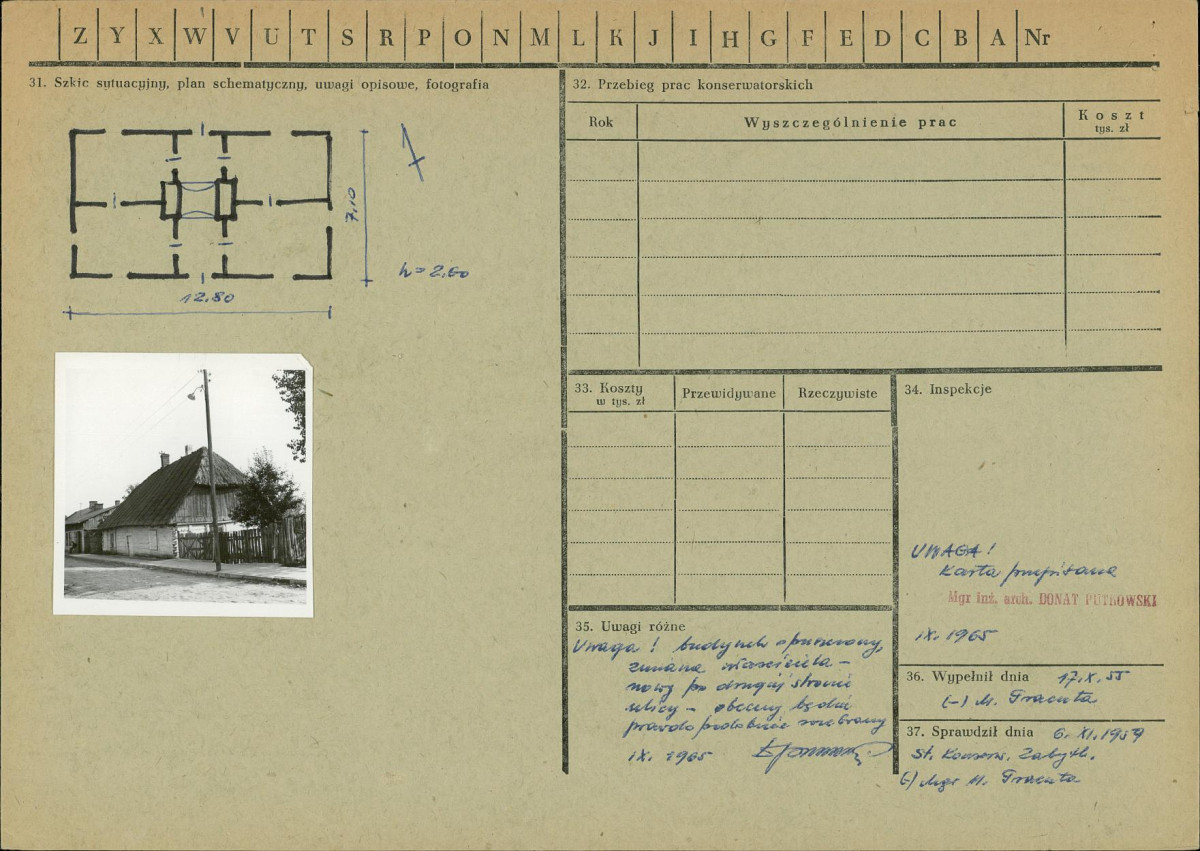 Z Y X W V U T S R P O N M L K J I H G F E D C B A Nr
31. Szkic sytuacyjny, plan schematyczny, uwagi opisowe, fotografia
7,10
h = 2,60
12,80
32. Przebieg prac konserwatorskich
Rok
Wyszczególnienie prac
Koszt
tys. zł
33. Koszty
w tys. zł
Przewidywane
Rzeczywiste
34. Inspekcje
UWAGA!
Karta przepisana
Mgr inż. arch. DONAT PUTKOWSKI
IX. 1965
35. Uwagi różne
Uwaga! budynek opuszczony,
zmiana właściciela –
nowy po drugiej stronie
ulicy – obecny będzie
prawdopodobnie rozebrany
IX. 1965
36. Wypełnił dnia 17.X.55
(–) M.
37. Sprawdził dnia 6.XI.1959
St. Konserw. Zabytk.
(–) Mgr M.